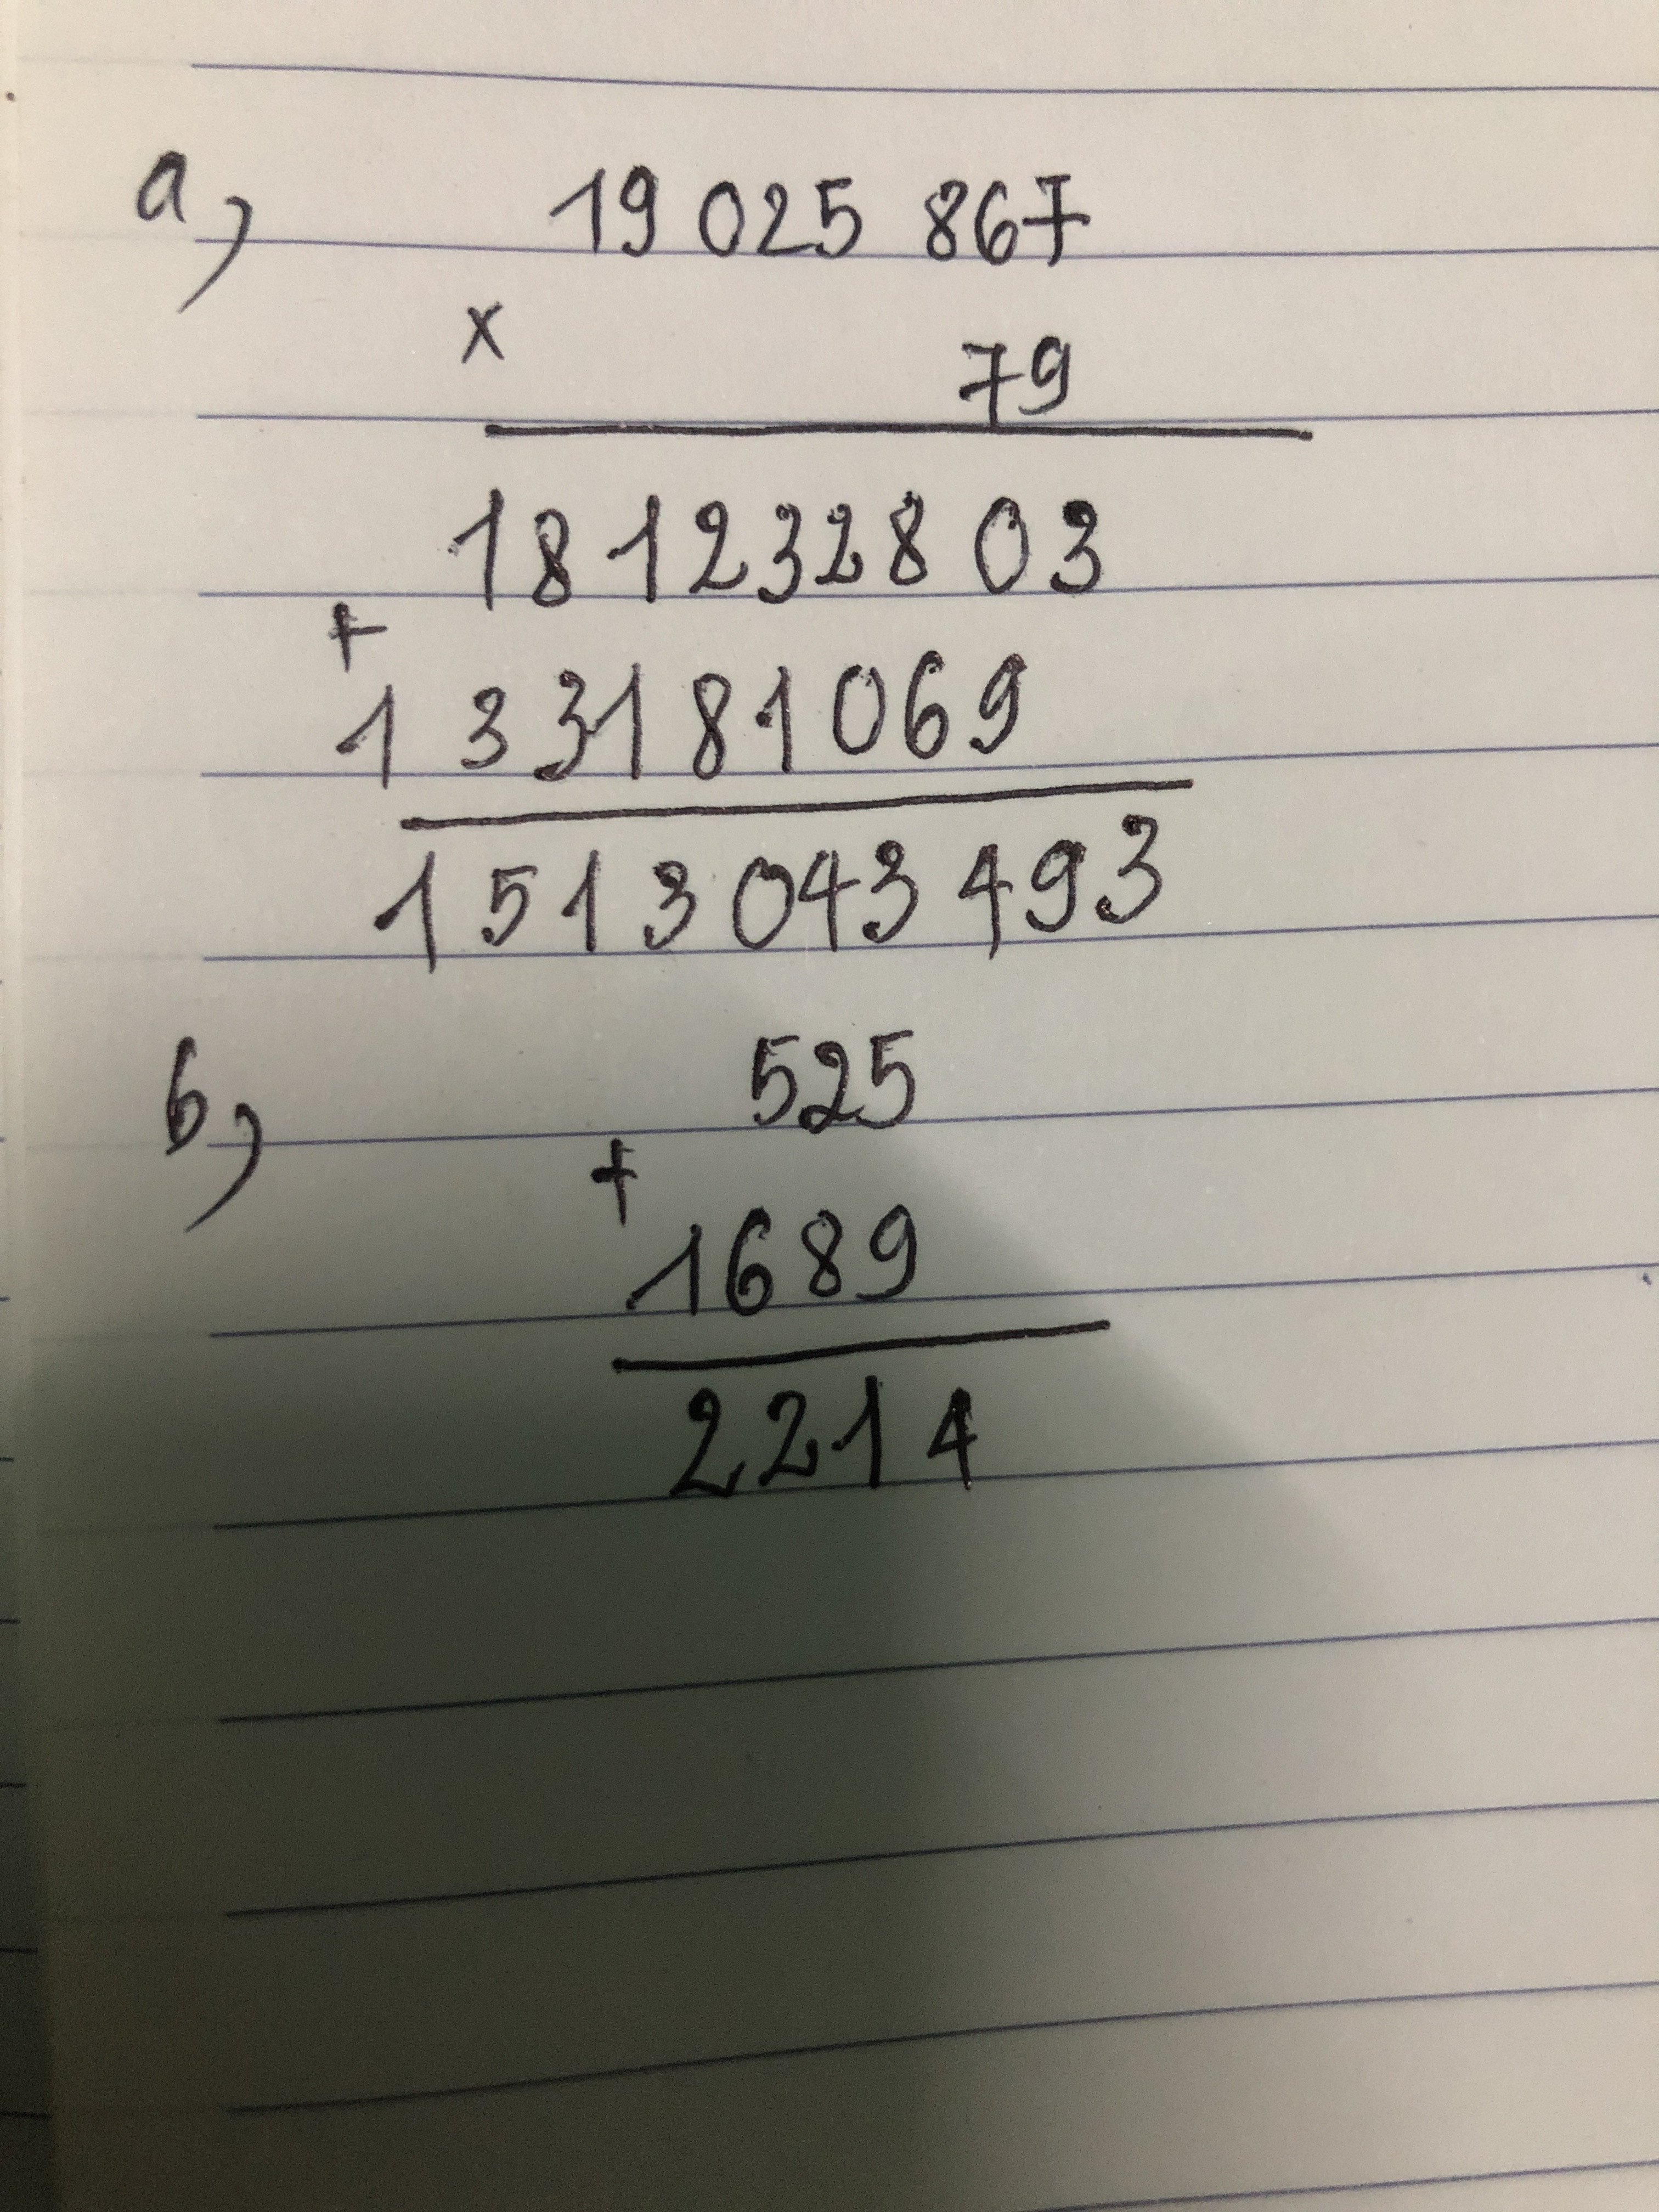 a, 19 025 867
x
79
181232803
+
133181069
1513043493
b, 525
+
1689
2214